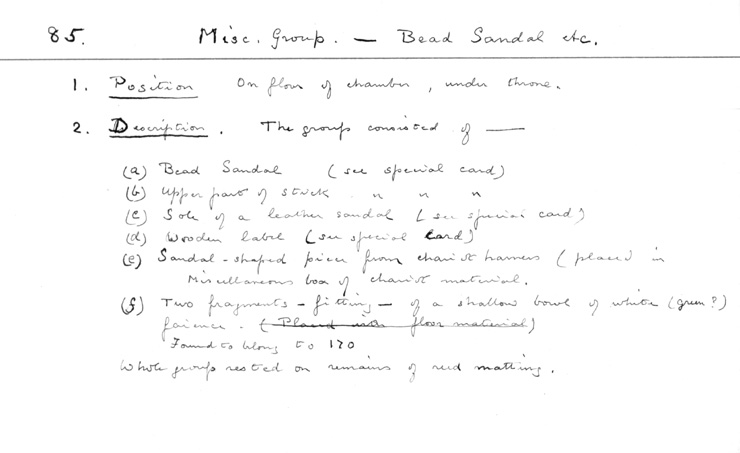 85. Misc. Group. — Bead Sandal etc.
1. Position On floor of chamber, under throne.
2. Description. The group consisted of —
(a) Bead Sandal (see special card)
(b) Upper part of stick " " "
(c) Sole of a leather sandal (see special card)
(d) Wooden label (see special card)
(e) Sandal-shaped piece from chariot harness (placed in
Miscellaneous box of chariot material.
(f) Two fragments - fitting - of a shallow bowl of white (green?)
faience. (Placed with floor material)
Found to belong to 170
Whole group rested on remains of reed matting.